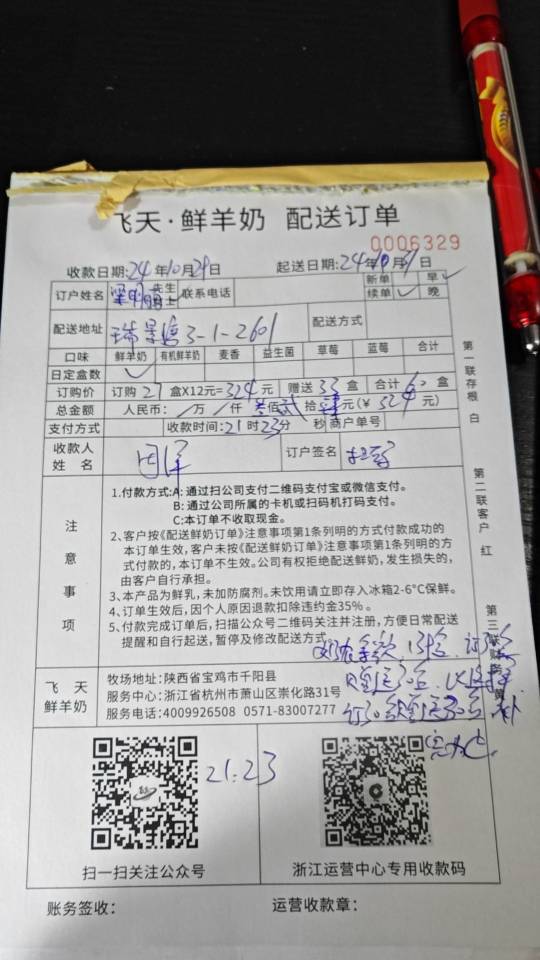 飞天·鲜羊奶 配送订单
0006329
收款日期:24年10月29日 起送日期:24年10月 日
订户姓名 先生 女士 联系电话 新单 早✓
续单✓ 晚
配送地址 瑞景 3-1-2601 配送方式
口味 鲜羊奶 有机鲜羊奶 麦香 益生菌 草莓 蓝莓 合计
日定盒数 ✓
订购价 订购27盒X12元=324元 赠送33盒 合计60盒
总金额 人民币: / 万 / 仟 叁佰贰拾肆元(¥ 324元)
支付方式 收款时间:21时23分 秒 商户单号
收款人姓名 订户签名
注意事项
1.付款方式:A:通过扫公司支付二维码支付宝或微信支付。
B:通过公司所属的卡机或扫码机打码支付。
C:本订单不收取现金。
2、客户按《配送鲜奶订单》注意事项第1条列明的方式付款成功的
本订单生效,客户未按《配送鲜奶订单》注意事项第1条列明的方
式付款的,本订单不生效。公司有权拒绝配送鲜奶,发生损失的,
由客户自行承担。
3、本产品为鲜乳,未加防腐剂。未饮用请立即存入冰箱2-6°C保鲜。
4、订单生效后,因个人原因退款扣除违约金35%。
5、付款完成订单后,扫描公众号二维码关注并注册,方便日常配送
提醒和自行起送,暂停及修改配送方式
第一联存根 白
第二联客户 红
第三联财务 黄
飞天鲜羊奶
牧场地址:陕西省宝鸡市千阳县
服务中心:浙江省杭州市萧山区崇化路31号
服务电话:4009926508 0571-83007277
21:23
扫一扫关注公众号
浙江运营中心专用收款码
账务签收: 运营收款章: